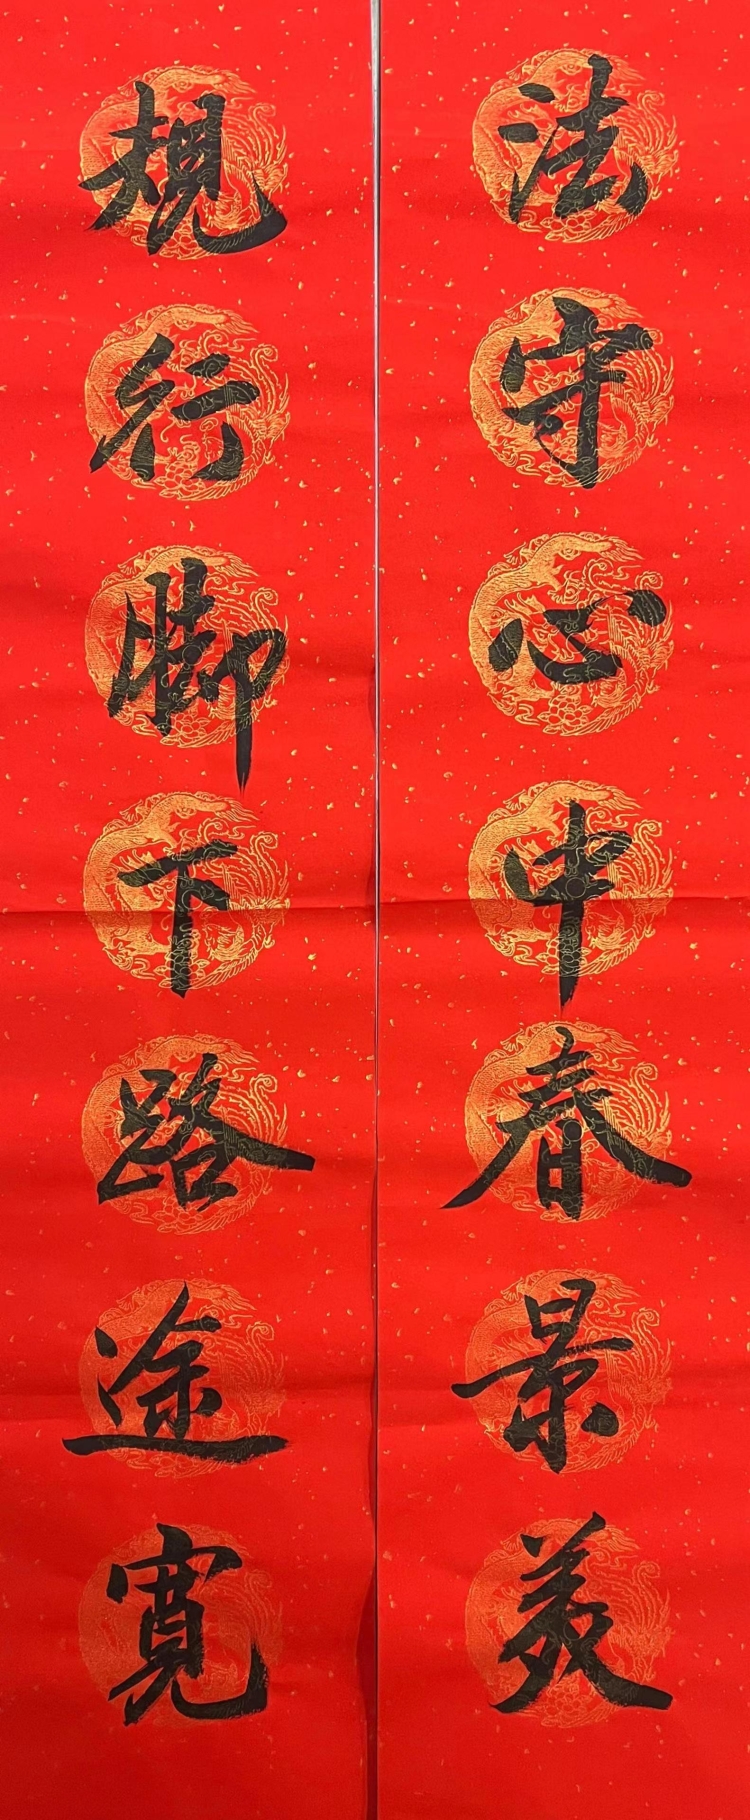 法守心中春景美
規行脚下路途寬